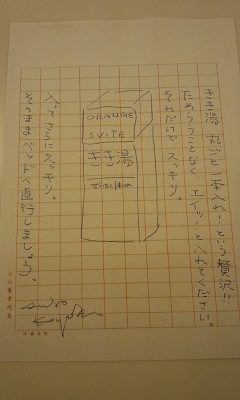 きき湯 丸ごと一本入れ!という贅沢!!
ためらうことなく、エイッと入れてください。
それだけで スッキリ。
ORANGE
SUITE
きき湯
入ってさらにスッキリ。
そのままベッドへ直行しましょう。
小山薫堂用箋